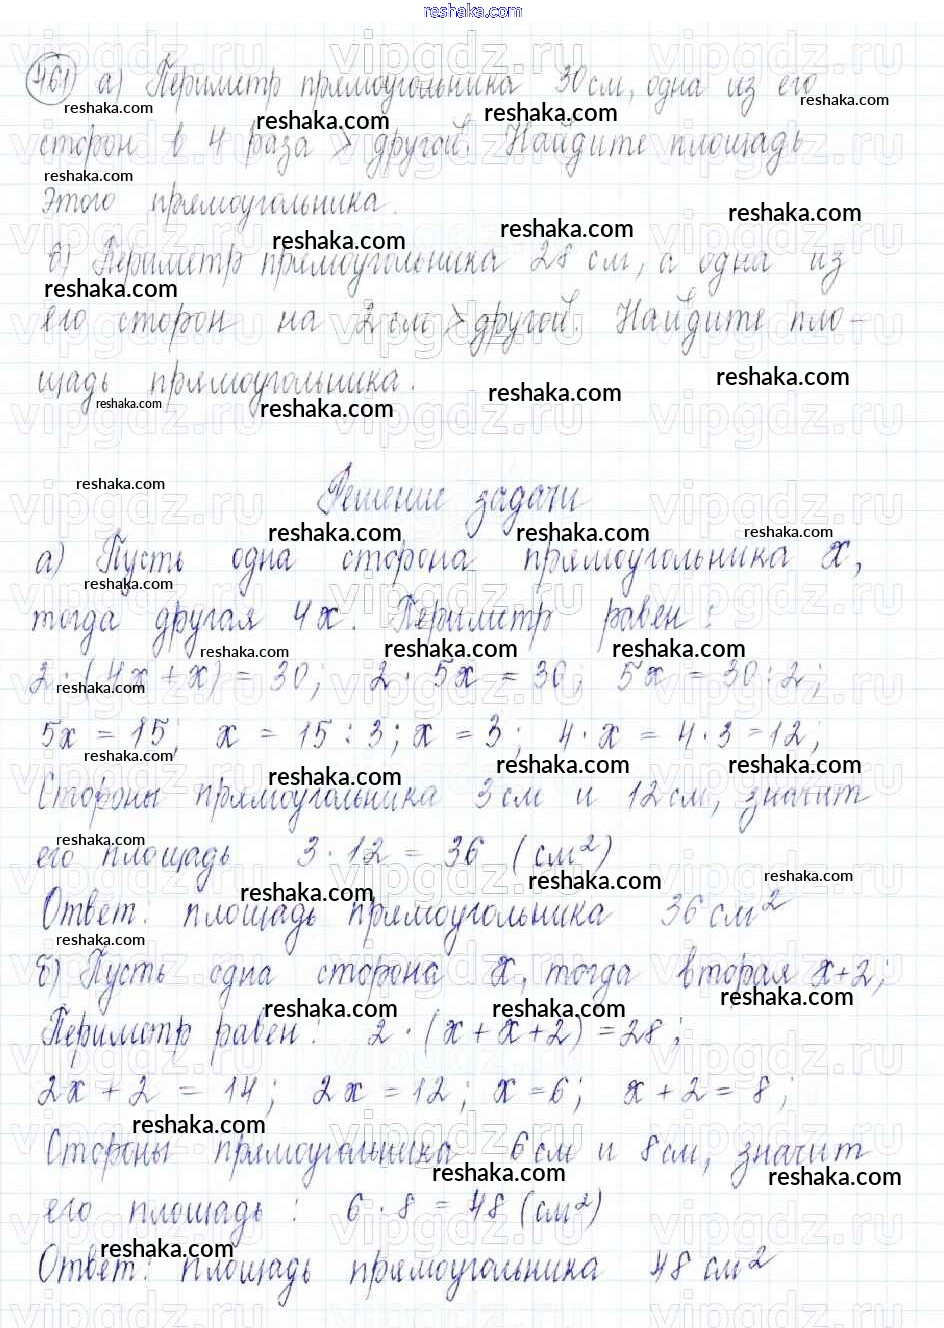 reshaka.com
461 а) Периметр прямоугольника 30 см, одна из его
сторон в 4 раза > другой. Найдите площадь
этого прямоугольника.
в) Периметр прямоугольника 28 см, а одна из
его сторон на 2 см > другой. Найдите пло-
щадь прямоугольника.
Решение задачи
а) Пусть одна сторона прямоугольника x,
тогда другая 4x. Периметр равен:
2·(4x+x) = 30; 2·5x = 30; 5x = 30:2;
5x = 15; x = 15:3; x = 3; 4·x = 4·3=12;
Стороны прямоугольника 3 см и 12 см, значит
его площадь 3·12 = 36 (см²)
Ответ: площадь прямоугольника 36 см²
б) Пусть одна сторона x, тогда вторая x+2;
Периметр равен: 2·(x+x+2)=28;
2x+2 = 14; 2x = 12; x=6; x+2=8;
Стороны прямоугольника 6 см и 8 см, значит
его площадь: 6·8 = 48 (см²)
Ответ: площадь прямоугольника 48 см²